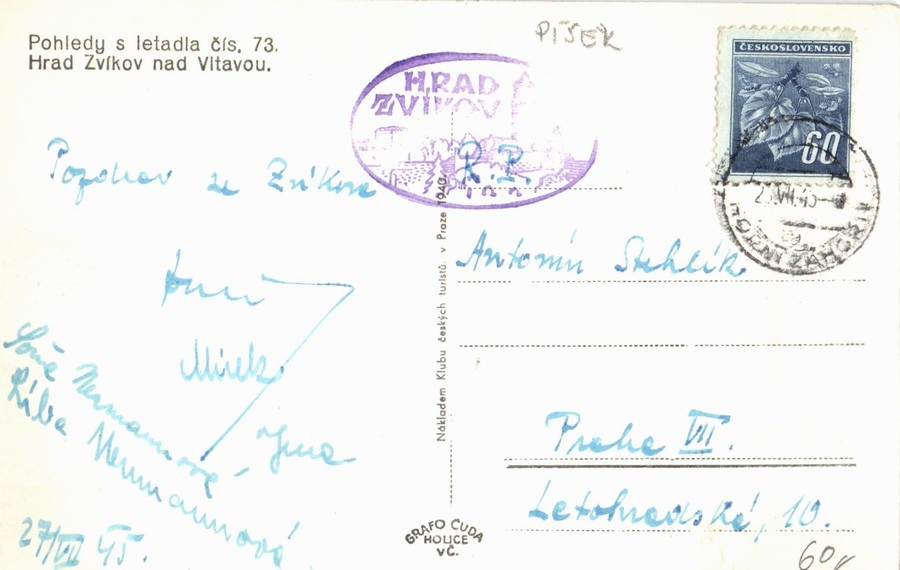 Pohledy s letadla čís. 73.
Hrad Zvíkov nad Vltavou.
PÍSEK
HRAD
ZVÍKOV
ČESKOSLOVENSKO
60
HORNÍ ZÁHOŘÍ
Pozdrav ze Zvíkova
Mirek
Jena
Líba Neumannová
27/VII 45.
Nákladem Klubu českých turistů v Praze 1940.
GRAFO ČUDA
HOLICE
VČ.
R. P.
Antonín Stehlík
Praha VII.
Letohradská, 10.
60